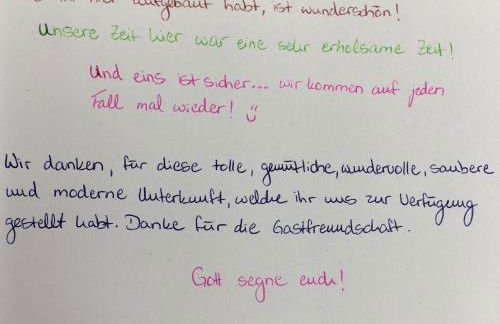 ihr hier aufgebaut habt, ist wunderschön!
Unsere Zeit hier war eine sehr erholsame Zeit!
Und eins ist sicher... wir kommen auf jeden
Fall mal wieder!
Wir danken, für diese tolle, gemütliche, wundervolle, saubere
und moderne Unterkunft, welche ihr uns zur Verfügung
gestellt habt. Danke für die Gastfreundschaft.
Gott segne euch!